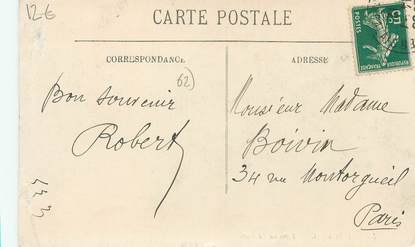 12€
CARTE POSTALE
5c
POSTES
REPUBLIQUE FRANÇAISE
CORRESPONDANCE
ADRESSE
62)
Bon souvenir
Robert
Monsieur Madame
Boivin
34 rue Montorgueil
Paris